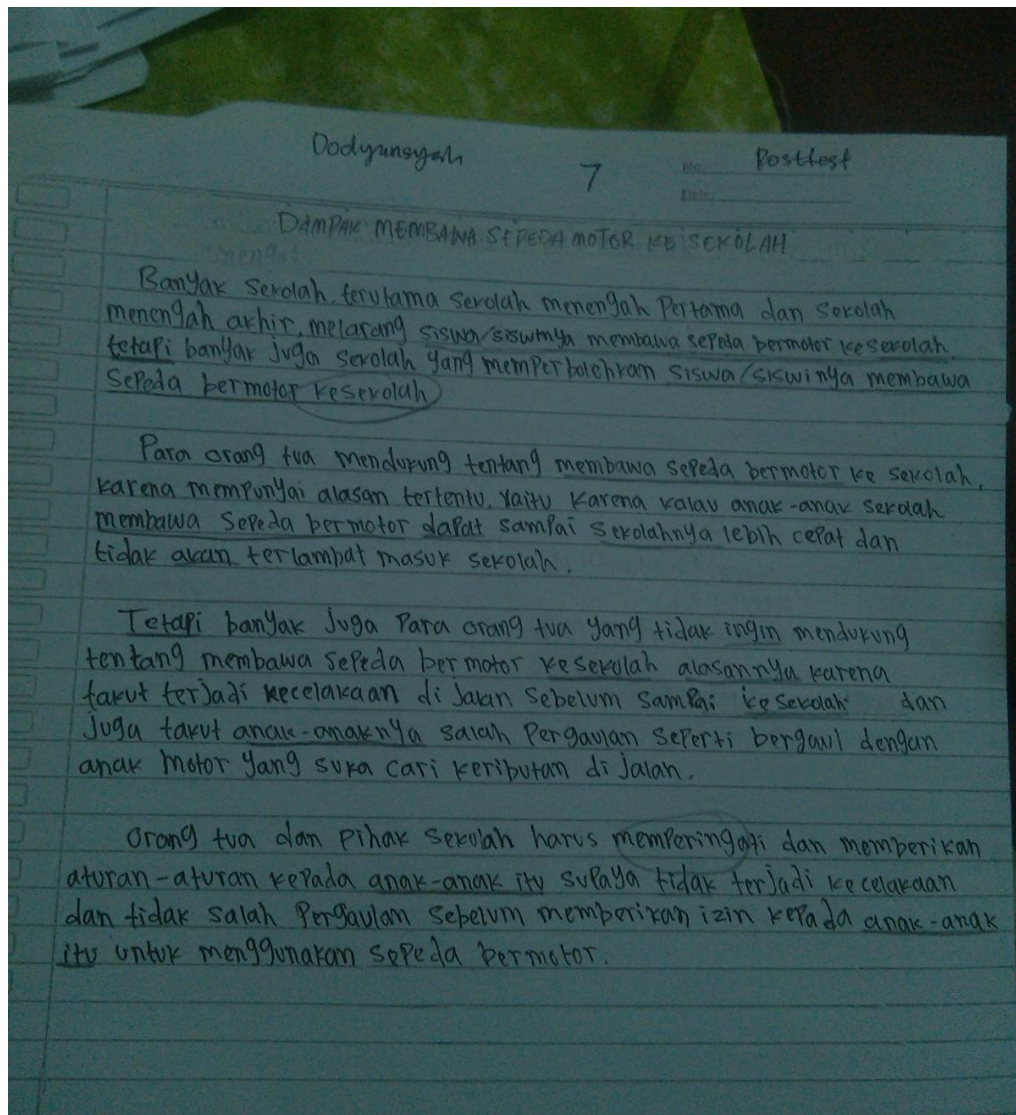 Dodyunsyah
7
No.
Posttest
Date.
DAMPAK MEMBAWA SEPEDA MOTOR KE SEKOLAH
Banyak sekolah, terutama sekolah menengah Pertama dan sekolah
menengah akhir, melarang siswa/siswinya membawa sepeda bermotor kesekolah.
tetapi banyak juga sekolah yang memperbolehkan siswa/siswinya membawa
sepeda bermotor kesekolah
Para orang tua mendukung tentang membawa sepeda bermotor ke sekolah,
karena mempunyai alasan tertentu, yaitu karena kalau anak-anak sekolah
membawa sepeda bermotor dapat sampai sekolahnya lebih cepat dan
tidak akan terlambat masuk sekolah.
Tetapi banyak juga Para orang tua yang tidak ingin mendukung
tentang membawa sepeda bermotor kesekolah alasannya karena
takut terjadi kecelakaan di jalan sebelum sampai ke sekolah dan
juga takut anak-anaknya salah pergaulan seperti bergaul dengan
anak motor yang suka cari keributan di jalan.
Orang tua dan pihak sekolah harus memperingati dan memberikan
aturan-aturan kepada anak-anak itu supaya tidak terjadi kecelakaan
dan tidak salah Pergaulan sebelum memberikan izin kepada anak-anak
itu untuk menggunakan sepeda bermotor.